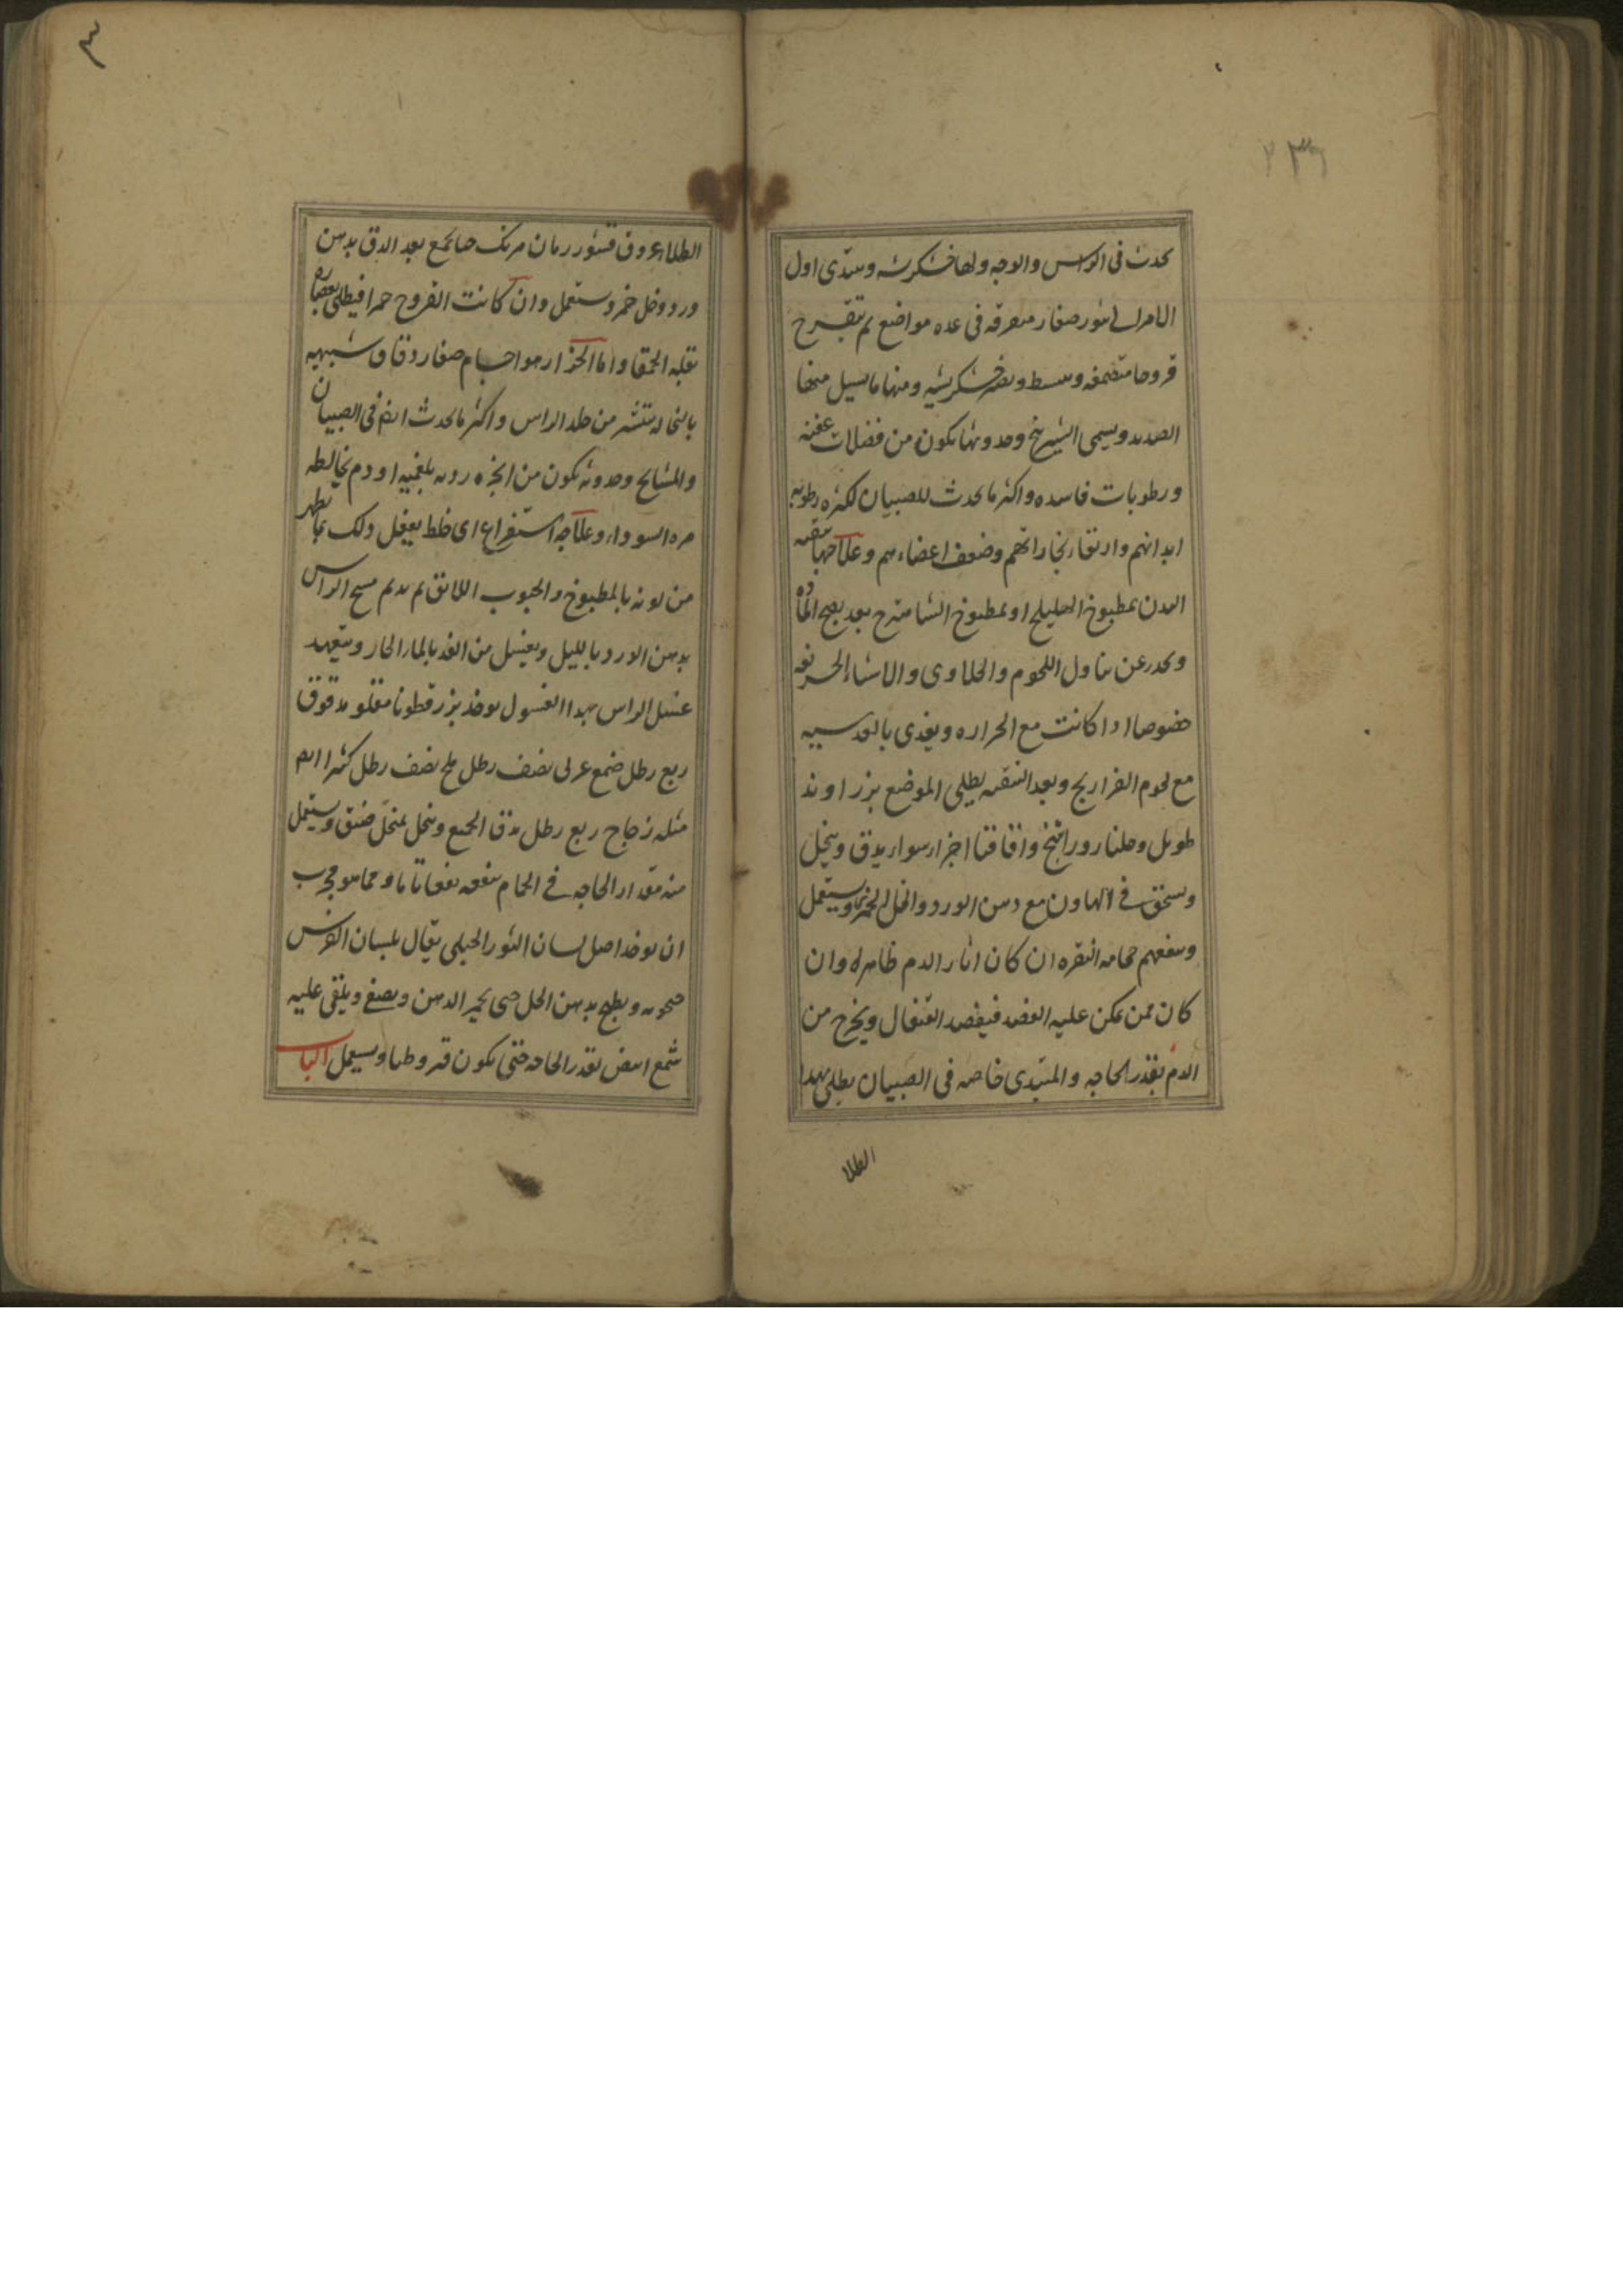 ٢٣٦
يحدث فى الراس والوجه ولها خشكريشه ويبتدى اول
الامر الى بثور صغار متفرقه فى عده مواضع ثم يتقرح
قروحا متضمغه ويبسط ويصير خشكريشه ومنها ما يسيل منها
الصديد ويسمى الشيرينج وحدوثها يكون من فضلات عفنه
ورطوبات فاسده واكثر ما يحدث للصبيان لكثره رطوبه
ابدانهم وارتقا بخاراتهم وضعف اعضاءهم وعلاجها تنقيه
البدن بمطبوخ الهليلج او بمطبوخ الشاهترج بعد نضج الماده
ويحذر عن تناول اللحوم والحلاوى والاشياء الحريفه
خصوصا اذا كانت مع الحراره ويغذى بالعدسيه
مع لحوم الفراريج وبعد التنقيه يطلى الموضع بزراوند
طويل وجلنار وراتينج واقاقيا اجزا سوا يدق وينخل
ويسحق فى الهاون مع دهن الورد والخل الخمر ويستعمل
وينفعهم حجامه النقره ان كان اثار الدم ظاهره وان
كان ممن يمكن عليه الفصد فيفصد القيفال ويخرج من
الدم بقدر الحاجه والمبتدى خاصه فى الصبيان يطلى بهذا
الطلا
الطلا عروق قشور رمان مرتك حنا يجمع بعد الدق بدهن
ورد وخل خمر ويستعمل وان كانت القروح حمرا فيطلى بعصاره
بقله الحمقا واما الحزاز هو اجسام صغار دقاق شبيهه
بالنخاله ينتشر من جلد الراس واكثر ما يحدث ايضا فى الصبيان
والمشايخ وحدوثه يكون من ابخره رديه بلغميه او دم يخالطه
مره السوداء وعلاجه استفراغ اى خلط يفعل ذلك بما يظهر
من لونه بالمطبوخ والحبوب اللائق ثم يدهن مسح الراس
بدهن الورد بالليل ويغسل من الغد بالماء الحار ويتعهد
غسل الراس بهذا الغسول يوخذ بزر قطونا مقلو مدقوق
ربع رطل صمغ عربى نصف رطل ملح نصف رطل كثيرا ايضا
مثله زجاج ربع رطل يدق الجميع وينخل بمنخل ضيق ويستعمل
منه مقدار الحاجه فى الحمام ينفعه نفعا تاما ومما هو مجرب
ان يوخذ اصل لسان الثور الجبلى يقال بلسان الفرس
ويطبخ بدهن الخل حتى يحمر الدهن ويصفى ويلقى عليه
شمع ابيض بقدر الحاجه حتى يكون قيروطيا ويستعمل الباب